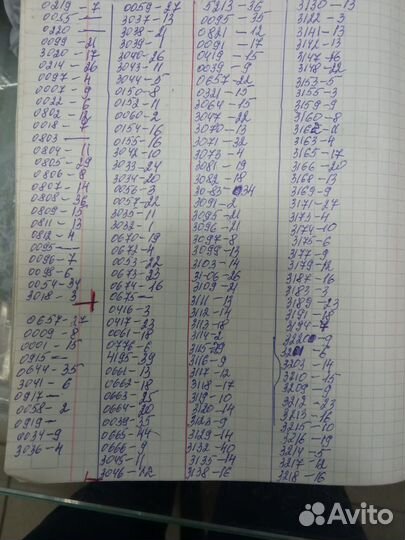 0219-7
0065-
0220-
0099-21
3020-17
0214-26
0097-4
0007-9
0022-6
0802-12
0018-7
0803-
0804-11
0805-29
0806-8
0807-14
0808-36
0809-15
0811-13
0812-4
0095-
0096-7
0098-6
0054-34
3018-3
0657-37
0009-8
0001-15
0915-
0644-35
3041-6
0917-
0058-2
0919-
0034-9
3036-4
0059-27
3037-13
3038-2
3039-1
3040-26
3043-11
3044-5
0150-8
0152-11
0060-2
0154-16
0155-16
3042-10
3033-24
3034-20
0056-3
0057-22
3035-11
3032-1
0670-19
0672-4
0053-22
0673-23
0674-16
0675-
0416-3
0417-23
0061-18
0776-6
4195-39
0661-13
0662-18
0663-25
0664-20
0039-35
0665-44
0666-9
3045-11
3046-12
5213-36
0095-35
0821-12
0091-17
0419-15
0039-9
0657-22
0321-15
3064-15
3047-22
3070-13
3071-32
3073-4
3081-19
3082-18
3083-34
3091-2
3095-21
3096-21
3097-8
3099-13
3103-14
3106-26
3109-21
3111-13
3112-14
3113-18
3114-2
3115-29
3116-9
3117-12
3118-17
3119-10
3120-14
3123-9
3129-14
3132-40
3135-14
3138-16
3130-13
3122-3
3141-13
3142-13
3147-16
3148-22
3153-5
3155-3
3159-9
3160-8
3163-4
3165-17
3166-20
3168-13
3169-9
3171-27
3173-4
3174-10
3175-6
3177-9
3179-12
3187-16
3183-3
3189-23
3191-18
3194-7
3203-14
3210-15
3209-2
3212-23
3213-16
3215-10
3216-19
3214-5
3217-12
3218-16
Avito